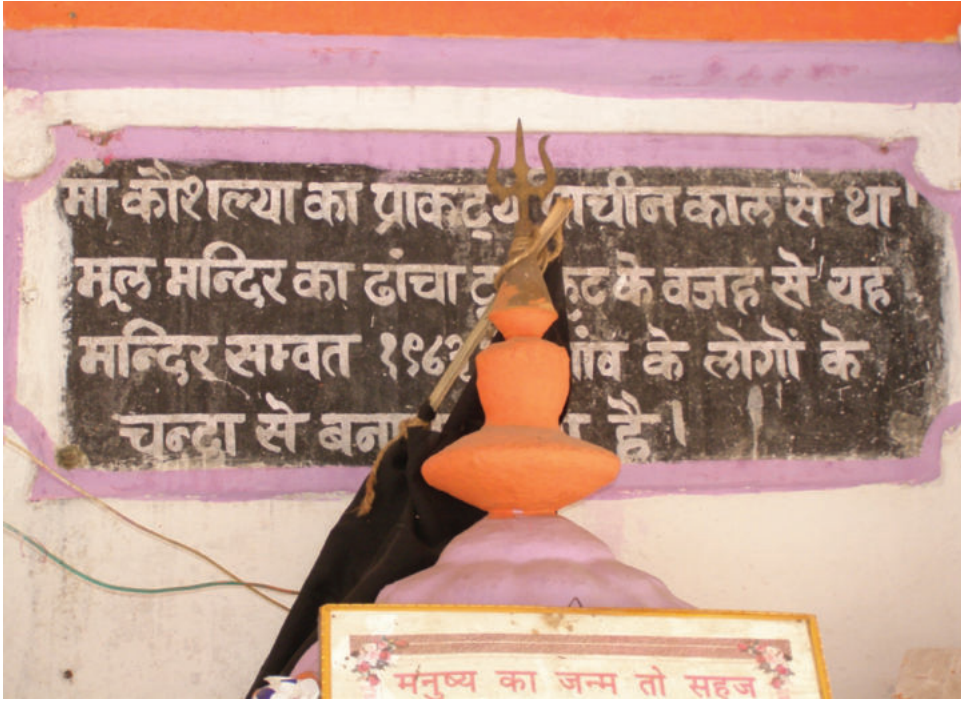 मां कौशल्या का प्राकट्य प्राचीन काल से था।
मूल मन्दिर का ढांचा के वजह से यह
मन्दिर सम्वत के लोगों के
चन्दा से है।
मनुष्य का जन्म तो सहज